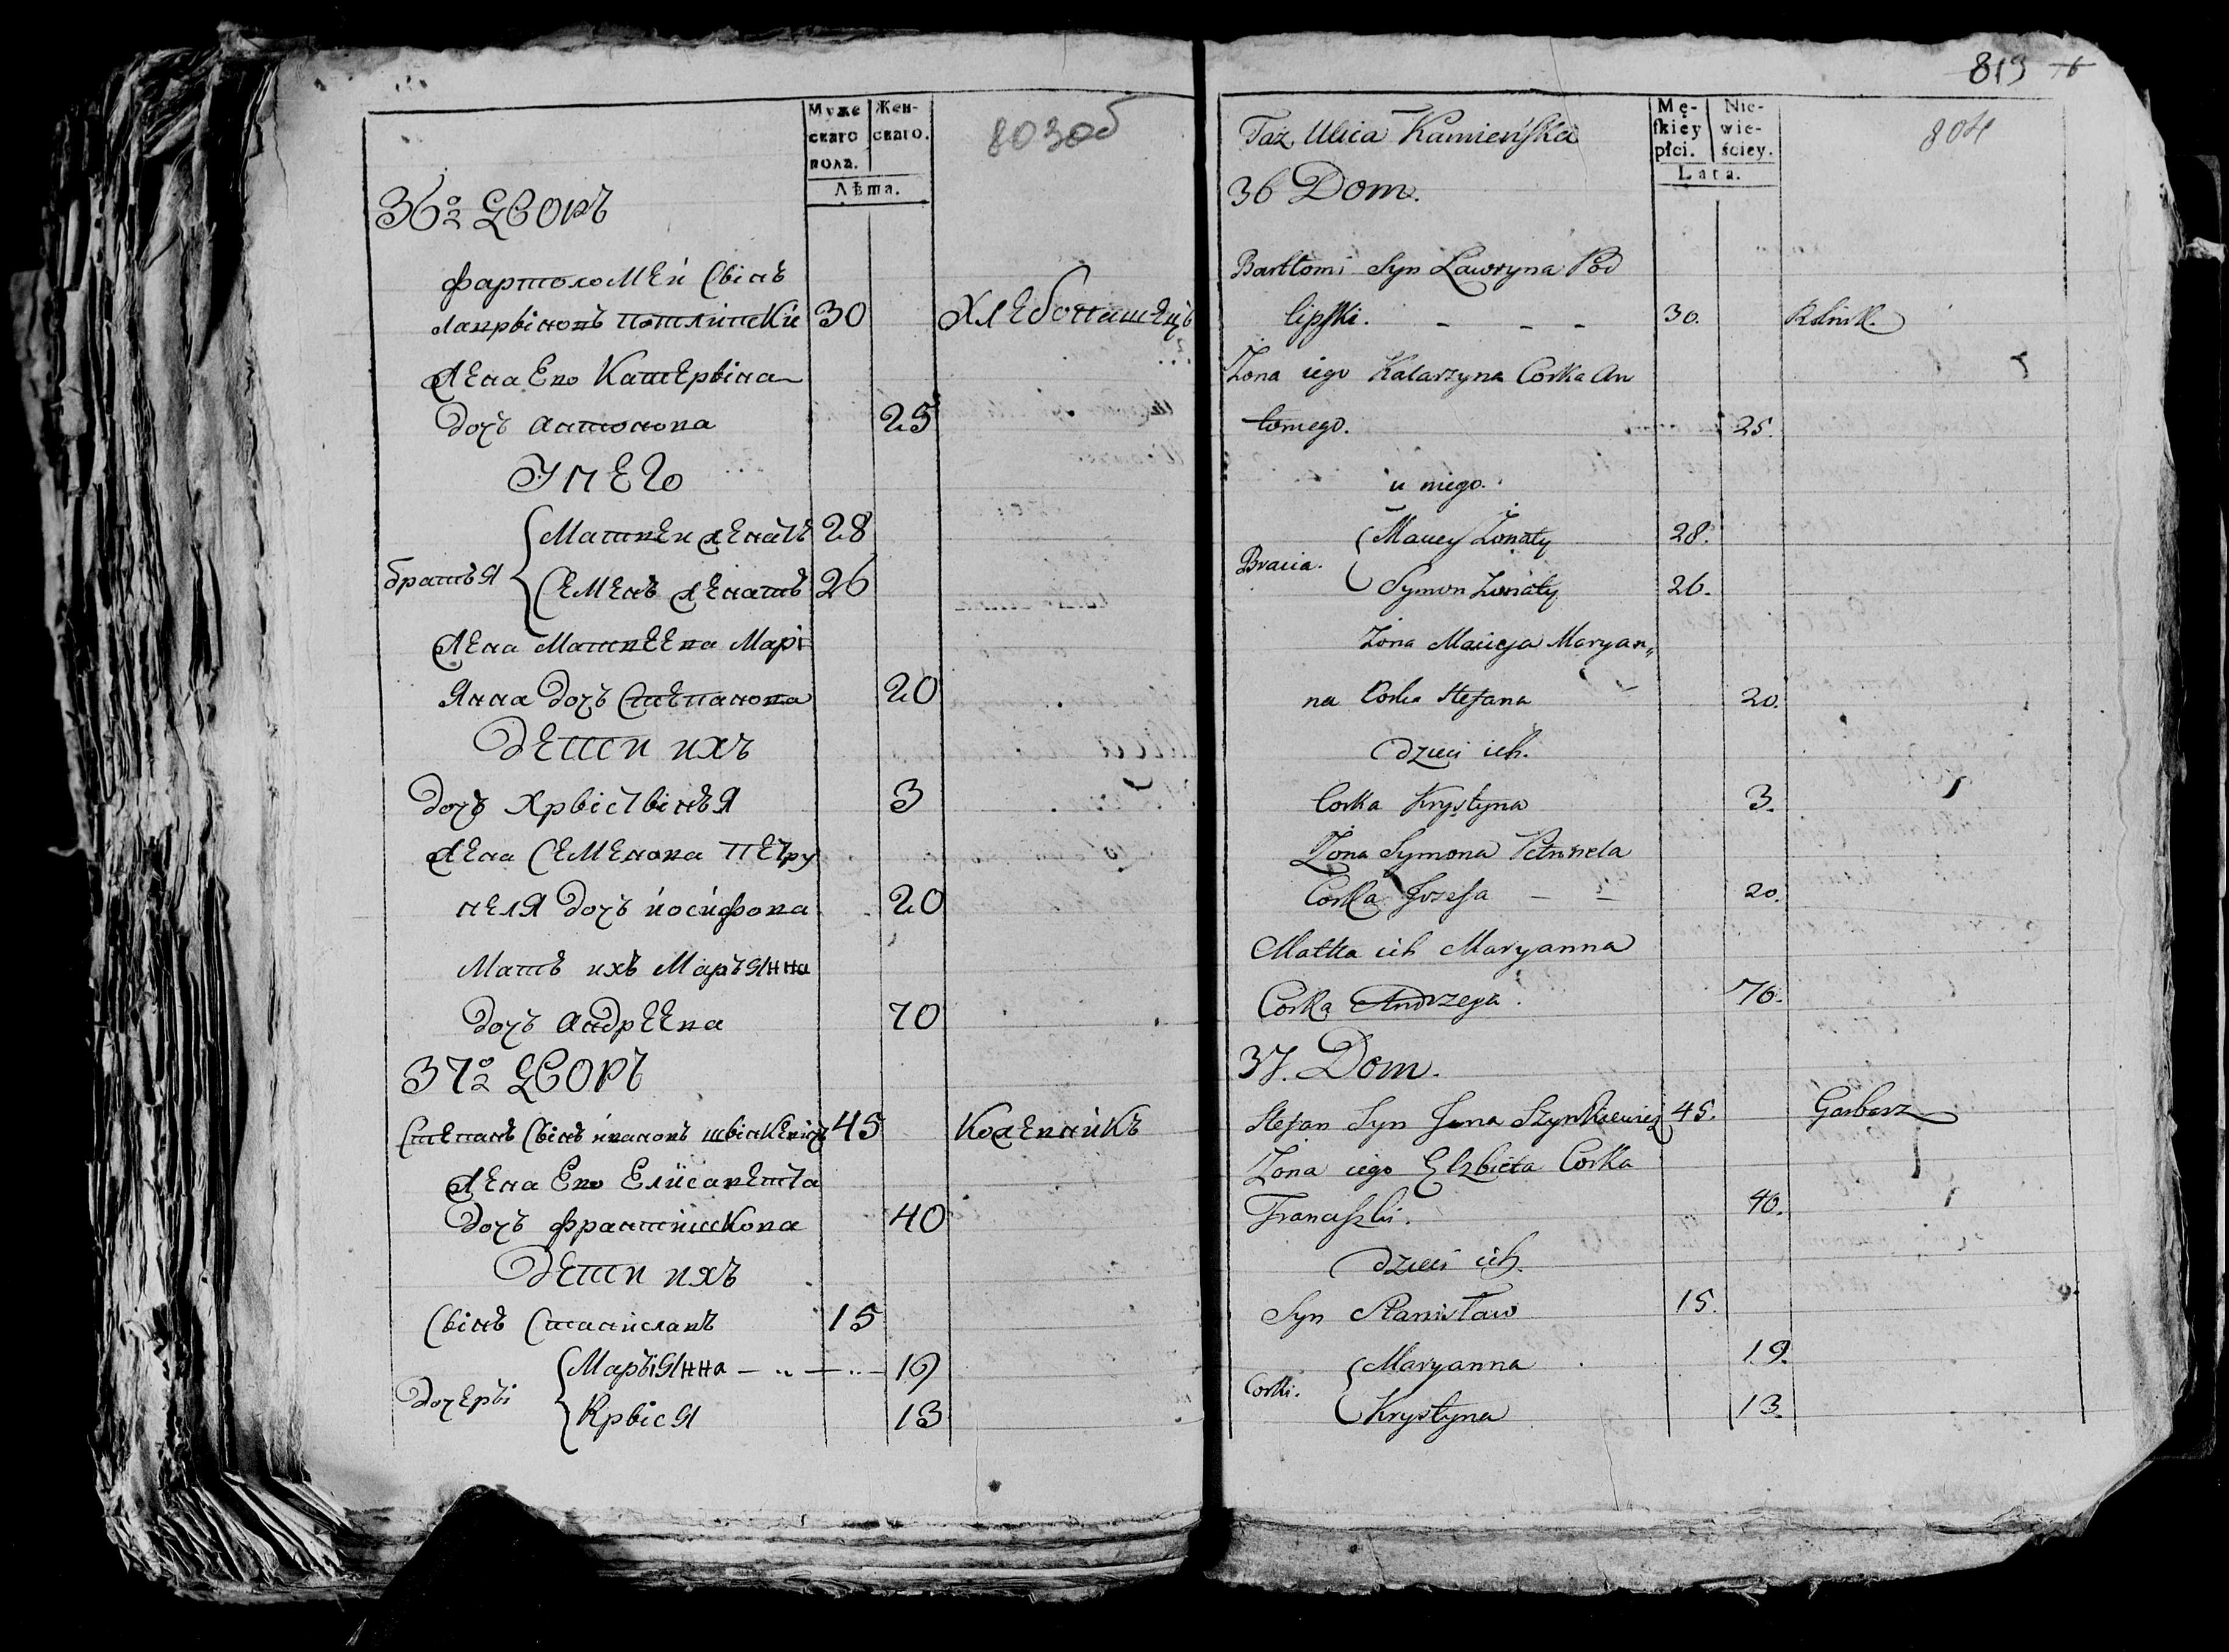 Муже
скаго
пола.
Жен-
скаго.
Лѣта.
803об
36го Дворъ
фартоломей Свінъ
лаврвіновъ потлипски 30 Хлебопашецъ
жена Ево Катервіна
дочъ антонова 25
У него
братья
Матвеи женатъ 28
Семенъ женатъ 26
жена Матвеева Марі
янна дочъ Степанова 20
дети ихъ
дочъ Хрвіствінъя 3
жена Семенова Петру
неля дочъ иосифова 20
Мать ихъ Маръянна
дочъ андреева 70
37го Дворъ
Степанъ Свінъ ивановъ швінкевичъ 45 Кожевникъ
жена Ево Елисавета
дочъ францишкова 40
дети ихъ
Свінъ Станиславъ 15
дочерві
Маръянна 19
Крвіся 13
819
804
Mę-
skiey
płci.
Nie-
wie-
ściey.
Lata.
Taż Ulica Kamieńska
36 Dom.
Bartłomi Syn Lawryna Pod
lipski. - - - 30. Rolnik.
Żona iego Katarzyna Corka An
toniego. 25.
u niego.
Bracia.
Maciey Żonaty 28.
Symon Żonaty 26.
Żona Macieja Maryan„
na Corka Stefana 20.
dzieci ich.
Corka Krystyna 3.
Żona Symona Petronela
Corka Jozefa - - 20.
Matka ich Maryanna
Corka Andrzeja. 70.
37. Dom.
Stefan Syn Jana Szynkiewicz 45. Garbarz
Żona iego Elzbieta Corka
Franciszki. 40.
dzieci ich.
Syn Stanisław 15.
Corki.
Maryanna 19.
Krystyna 13.